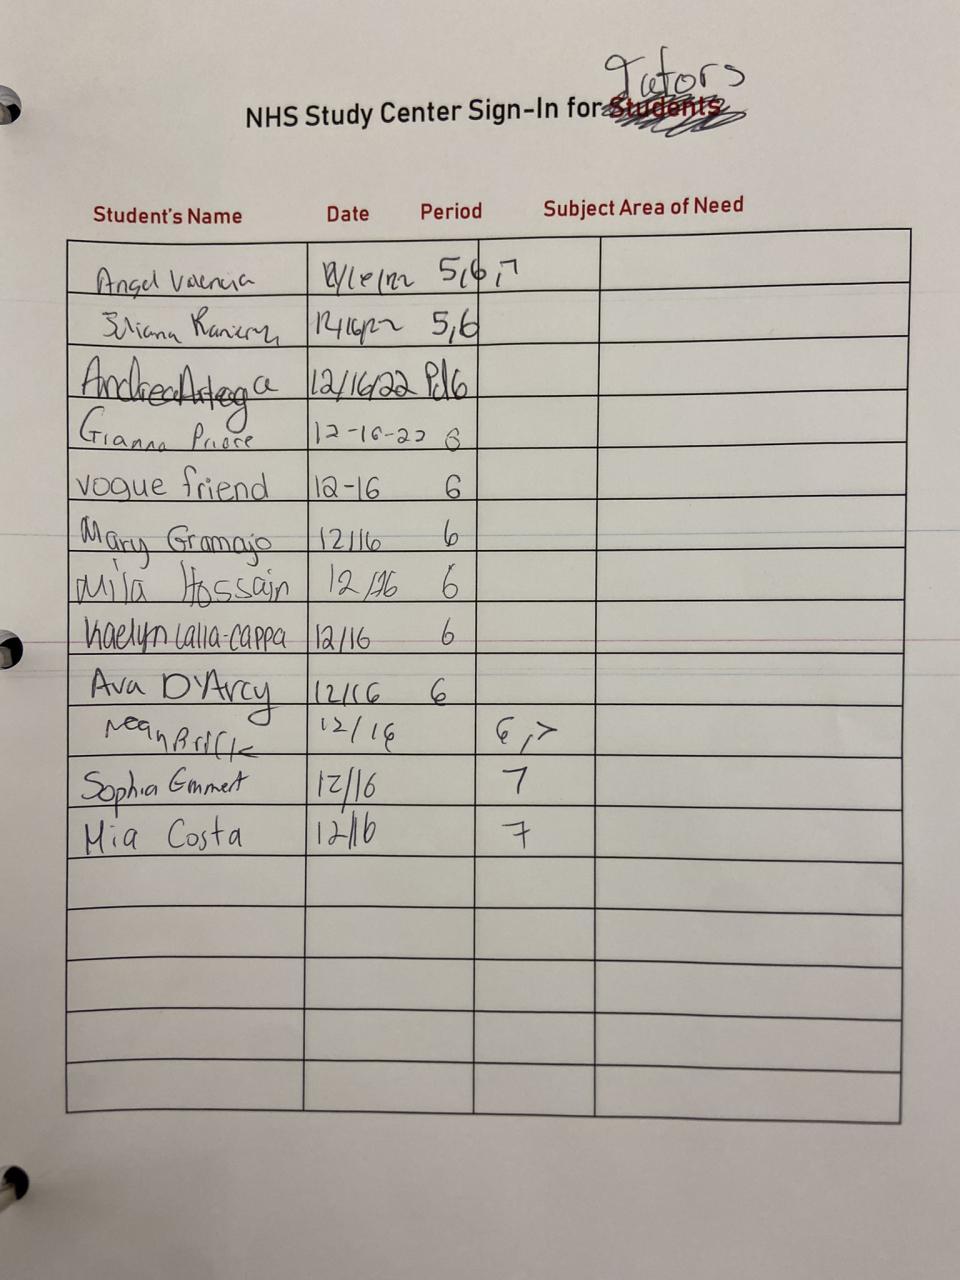 Tutors
NHS Study Center Sign-In for Students
Student's Name Date Period Subject Area of Need
Angel Valencia 12/16/22 5,6,7
12/16/22 5,6
Andrea Arteaga 12/16/22 Pd6
Gianna Priore 12-16-22 6
vogue friend 12-16 6
Mary Gramajo 12/16 6
Mila Hossain 12/16 6
Kaelyn Lalia-Cappa 12/16 6
Ava D'Arcy 12/16 6
12/16 6,7
Sophia Emmert 12/16 7
Mia Costa 12/16 7